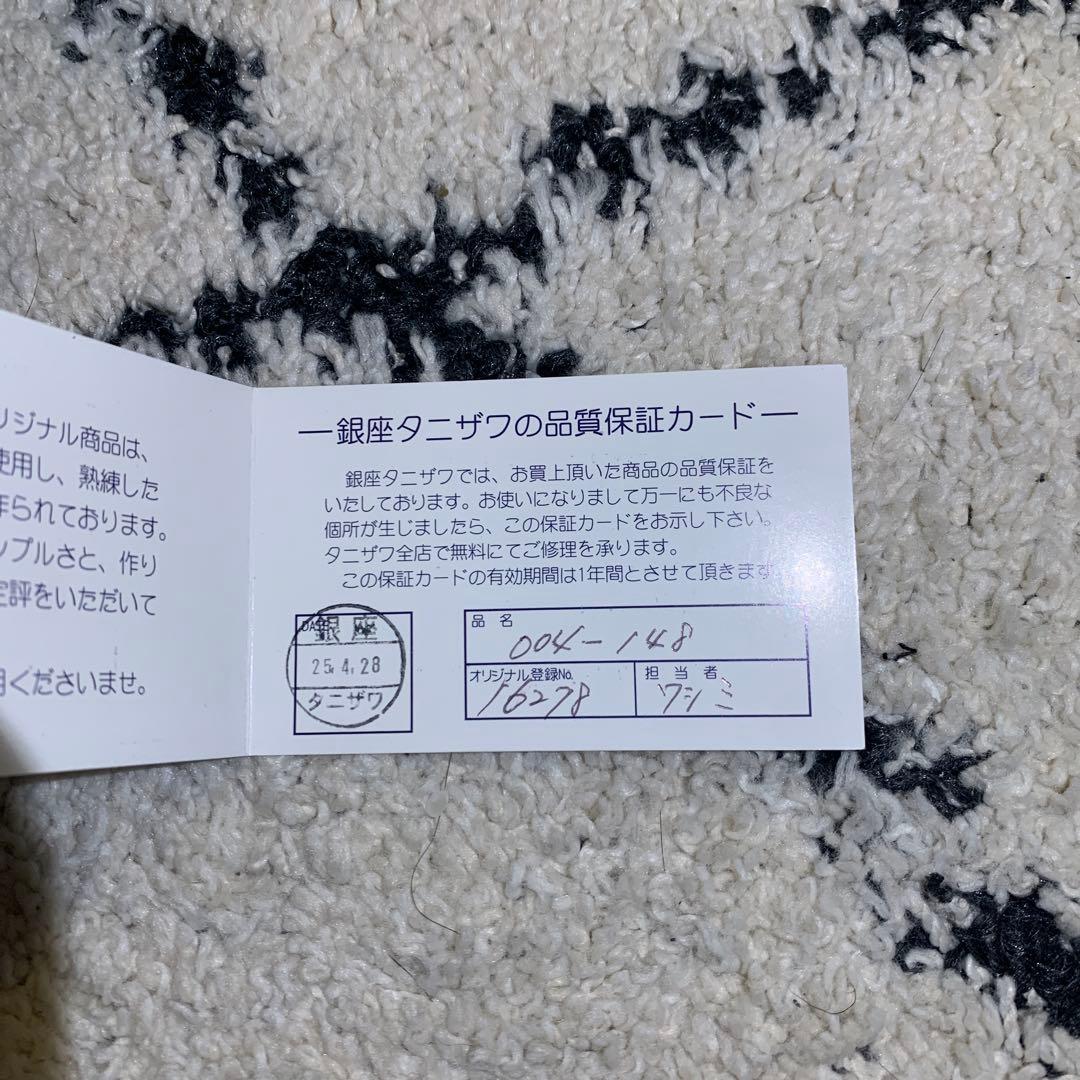 リジナル商品は、
使用し、熟練した
作られております。
ンプルさと、作り
定評をいただいて
用くださいませ。
―銀座タニザワの品質保証カード―
銀座タニザワでは、お買上頂いた商品の品質保証を
いたしております。お使いになりまして万一にも不良な
個所が生じましたら、この保証カードをお示し下さい。
タニザワ全店で無料にてご修理を承ります。
この保証カードの有効期間は1年間とさせて頂きます
銀座
25.4.28
タニザワ
品名
004-148
オリジナル登録No.
16278
担当者
ワシミ